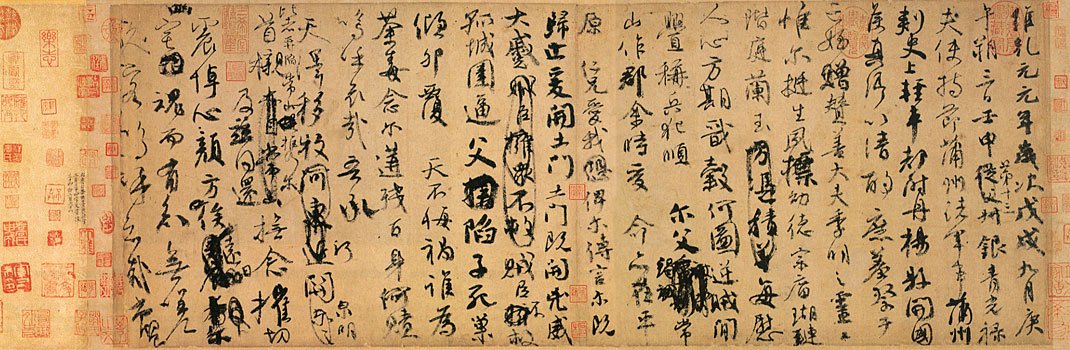 維乾元元年歲次戊戌九月庚
午朔三日壬申第十三叔銀青光祿
夫使持節蒲州諸軍事蒲州
刺史上輕車都尉丹楊縣開國
侯真卿以清酌庶羞祭于
亡姪贈贊善大夫季明之靈曰
惟爾挺生夙標幼德宗廟瑚璉
階庭蘭玉方憑積善每慰
人心方期戩穀何圖逆賊閒
釁稱兵犯順爾父竭誠常
山作郡余時受命亦在平
原仁兄愛我俾爾傳言爾既
歸止爰開土門土門既開凶威
大蹙賊臣擁眾不救賊臣不救
孤城圍逼父陷子死巢
傾卵覆天不悔禍誰為
荼毒念爾遘殘百身何贖
嗚呼哀哉吾承
天澤移牧河關泉明
比者再陷常山攜爾
首櫬及茲同還撫念摧切
震悼心顏方俟遠日
卜爾幽宅魂而有知無嗟
久客嗚呼哀哉尚饗